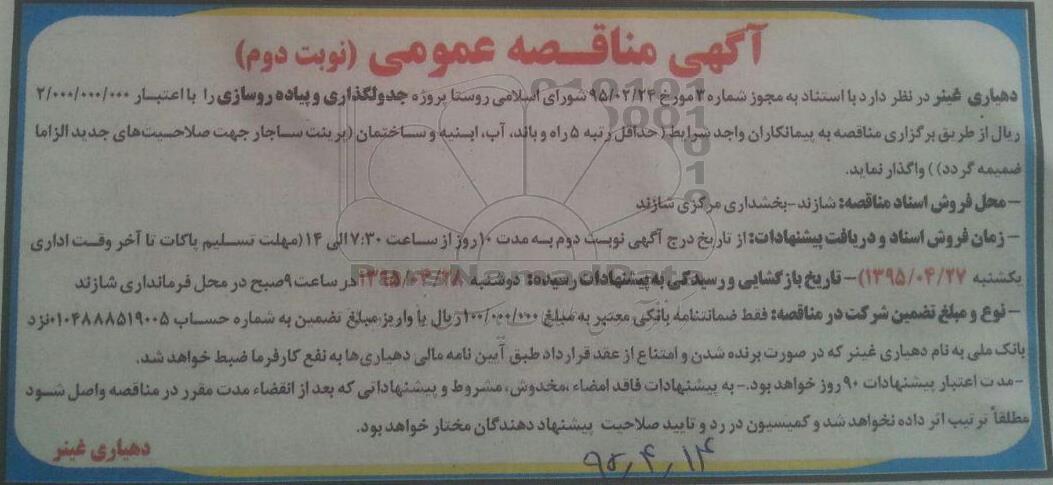 آگهی مناقصه عمومی (نوبت دوم)
دهیاری غینر در نظر دارد با استناد به مجوز شماره ۳ مورخ ۹۵/۰۲/۲۴ شورای اسلامی روستا پروژه جدولگذاری و پیاده روسازی را با اعتبار ۲/۰۰۰/۰۰۰/۰۰۰
ریال از طریق برگزاری مناقصه به پیمانکاران واجد شرایط (حداقل رتبه ۵ راه و باند، آب، ابنیه و ساختمان (پرینت ساجار جهت صلاحیت‌های جدید الزاما
ضمیمه گردد)) واگذار نماید.
– محل فروش اسناد مناقصه: شازند-بخشداری مرکزی شازند
– زمان فروش اسناد و دریافت پیشنهادات: از تاریخ درج آگهی نوبت دوم به مدت ۱۰ روز از ساعت ۷:۳۰ الی ۱۴ (مهلت تسلیم پاکات تا آخر وقت اداری
یکشنبه ۱۳۹۵/۰۴/۲۷) – تاریخ بازگشایی و رسیدگی به پیشنهادات رسیده: دوشنبه ۱۳۹۵/۰۴/۲۸ در ساعت ۹ صبح در محل فرمانداری شازند
– نوع و مبلغ تضمین شرکت در مناقصه: فقط ضمانتنامه بانکی معتبر به مبلغ ۱۰۰/۰۰۰/۰۰۰ ریال یا واریز مبلغ تضمین به شماره حساب ۰۱۰۴۸۸۸۵۱۹۰۰۵ نزد
بانک ملی به نام دهیاری غینر که در صورت برنده شدن و امتناع از عقد قرارداد طبق آیین نامه مالی دهیاری‌ها به نفع کارفرما ضبط خواهد شد.
-مدت اعتبار پیشنهادات ۹۰ روز خواهد بود.- به پیشنهادات فاقد امضاء ،مخدوش، مشروط و پیشنهاداتی که بعد از انقضاء مدت مقرر در مناقصه واصل شود
مطلقاً ترتیب اثر داده نخواهد شد و کمیسیون در رد و تایید صلاحیت پیشنهاد دهندگان مختار خواهد بود.
دهیاری غینر
۹۵,۴,۱۴